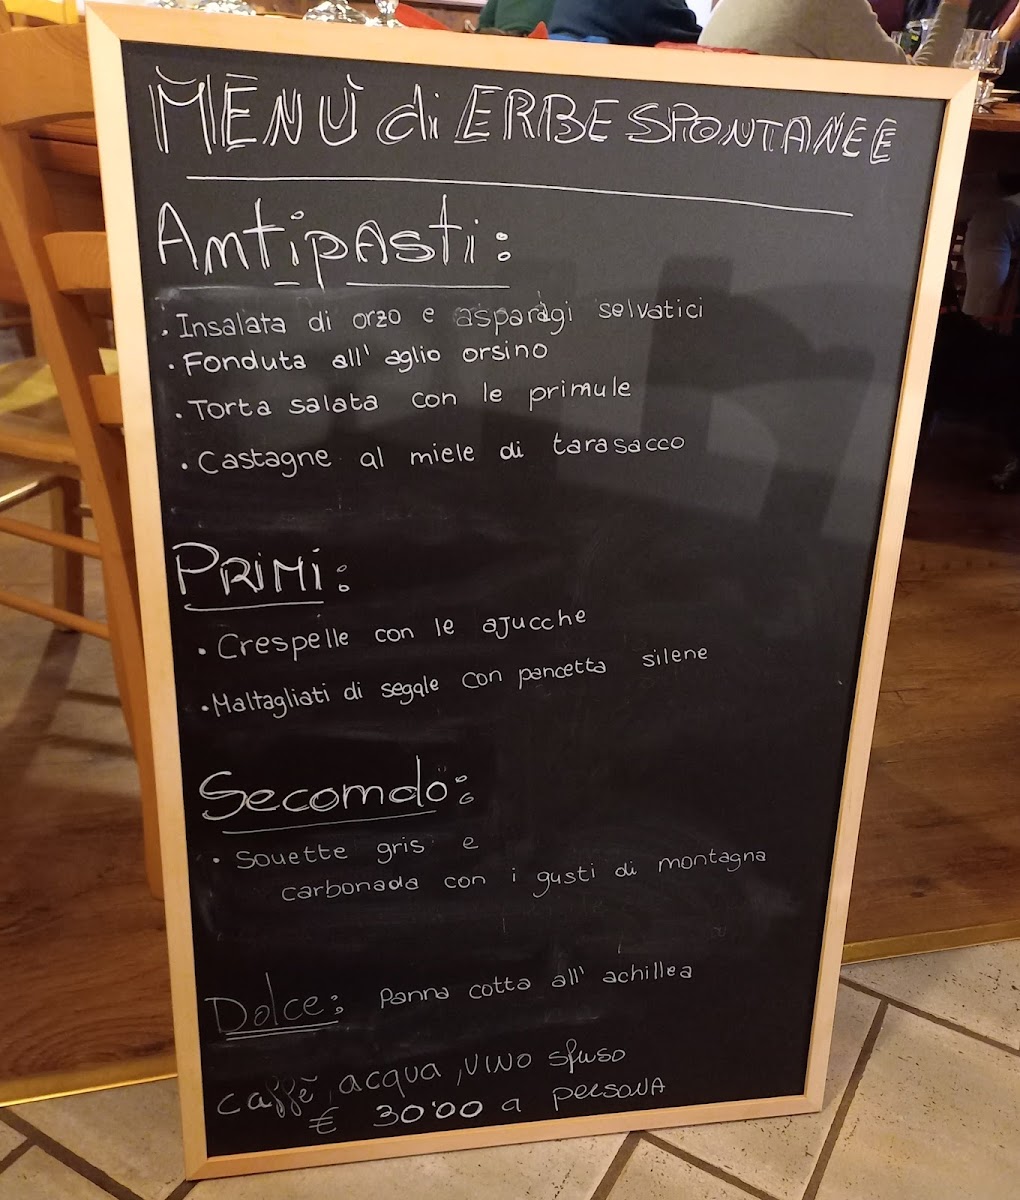 MENÙ di ERBE SPONTANEE
Antipasti:
• Insalata di orzo e asparagi selvatici
• Fonduta all' aglio orsino
• Torta salata con le primule
• Castagne al miele di tarasacco
PRIMI:
• Crespelle con le ajucche
• Maltagliati di segale con pancetta silene
Secondo:
• Souette gris e
carbonada con i gusti di montagna
Dolce: Panna cotta all' achillea
caffè, acqua, vino sfuso
€ 30'00 a persona